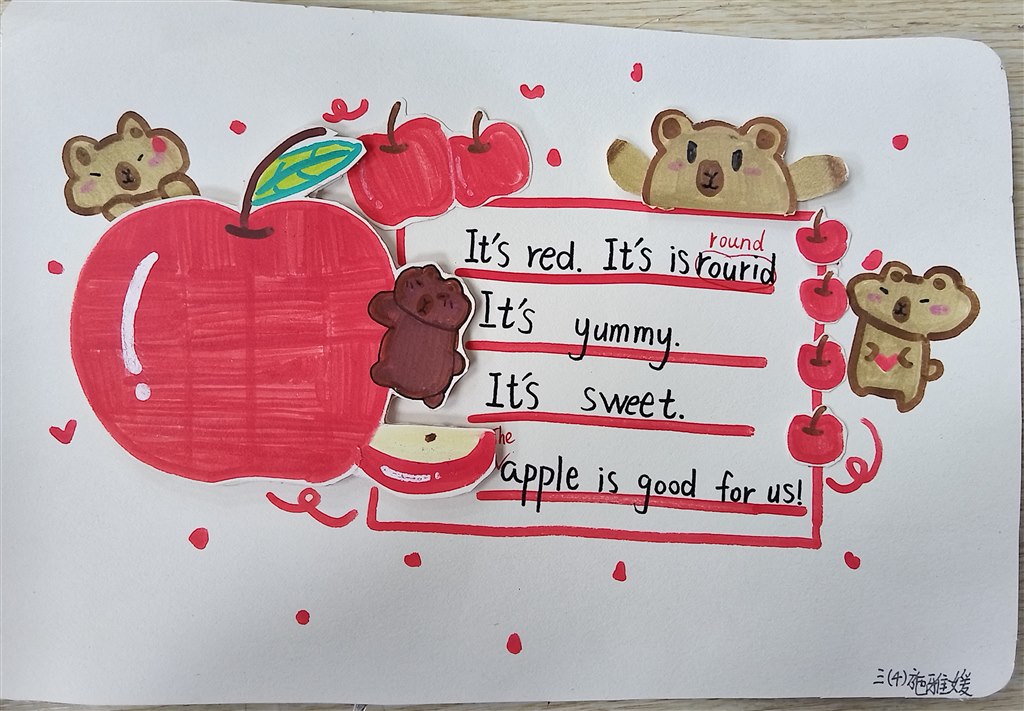 round
It's red. It's is rourid
It's yummy.
It's sweet.
The
apple is good for us!
三(4)施雅媛